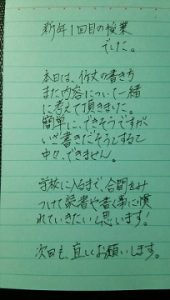 新年1回目の授業
でした。
本日は、作文の書き方
また内容について一緒
に考えて頂きました。
簡単に、できそうですが
いざ書きだそうとすると
中々、できません。
学校に入るまで、合間をみ
つけて読書や書く事に慣
れていきたいと思います!
次回も、宜しくお願いします。